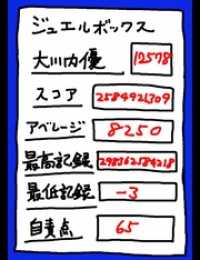 ジュエルボックス
大川内優 12578
スコア 2584921309
アベレージ 8250
最高記録 298362584218
最低記録 -3
自責点 65